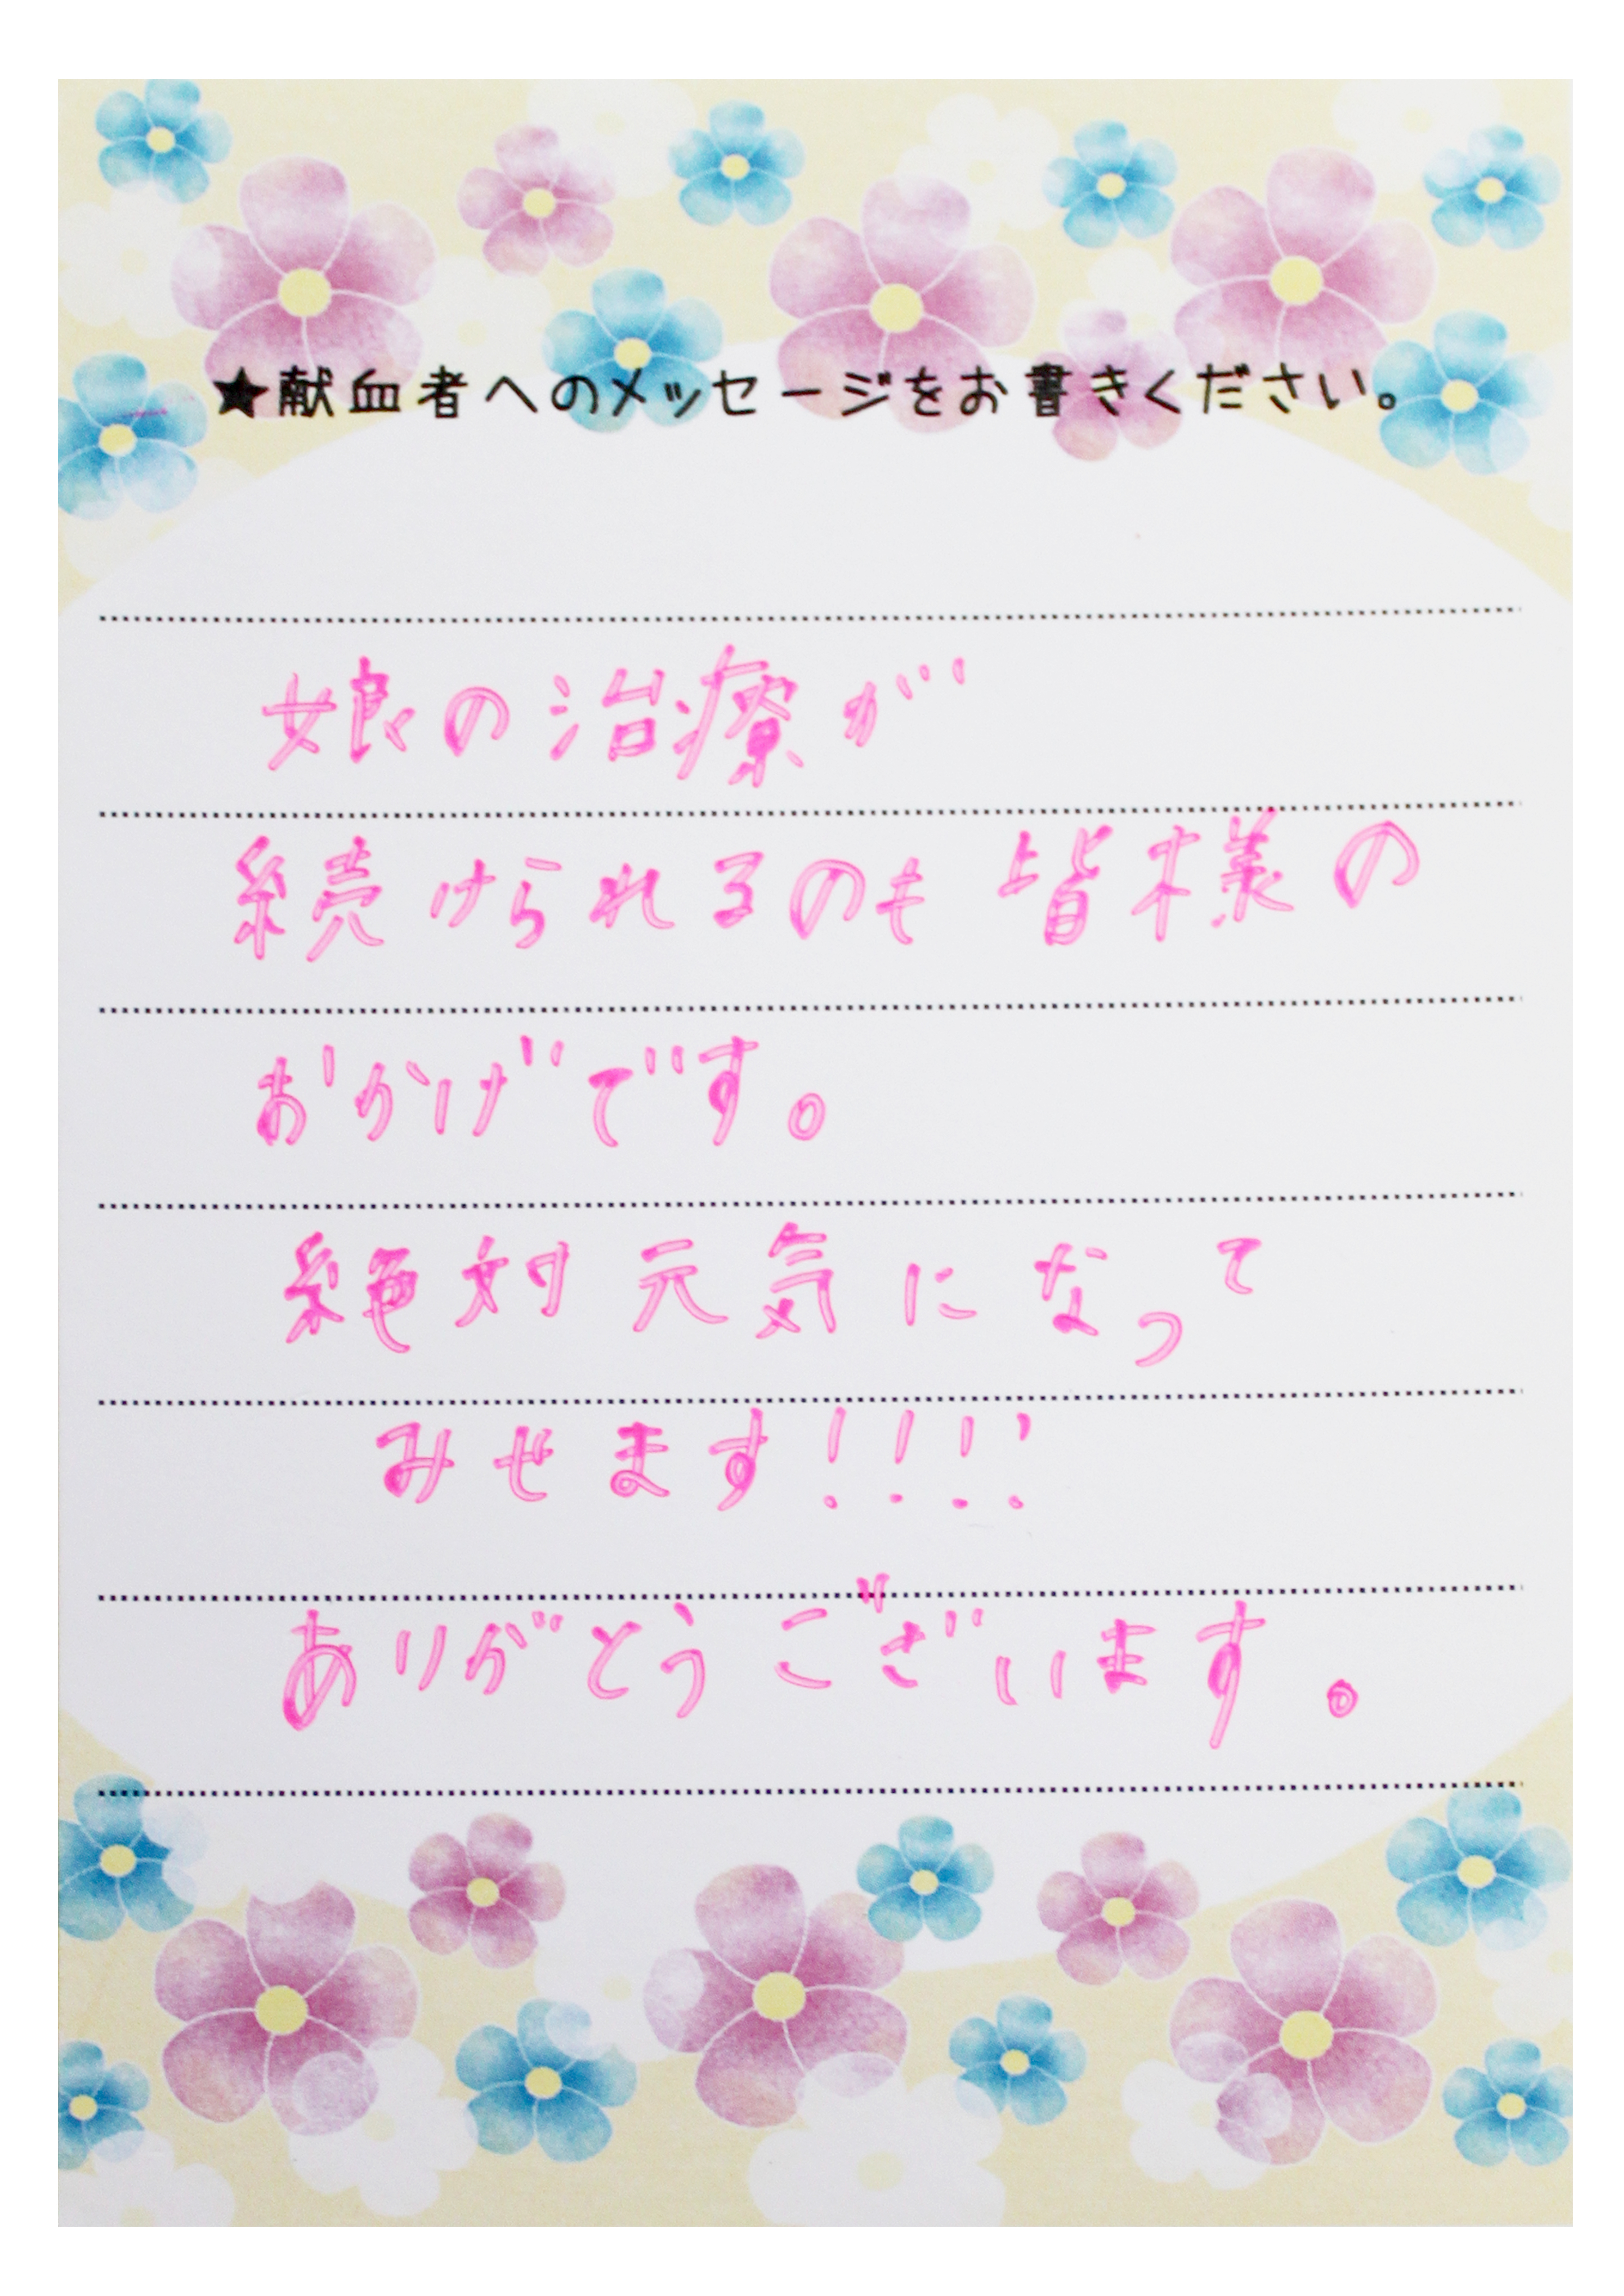 ★献血者へのメッセージをお書きください。
娘の治療が
続けられるのも皆様の
おかげです。
絶対元気になって
みせます!!!!
ありがとうございます。